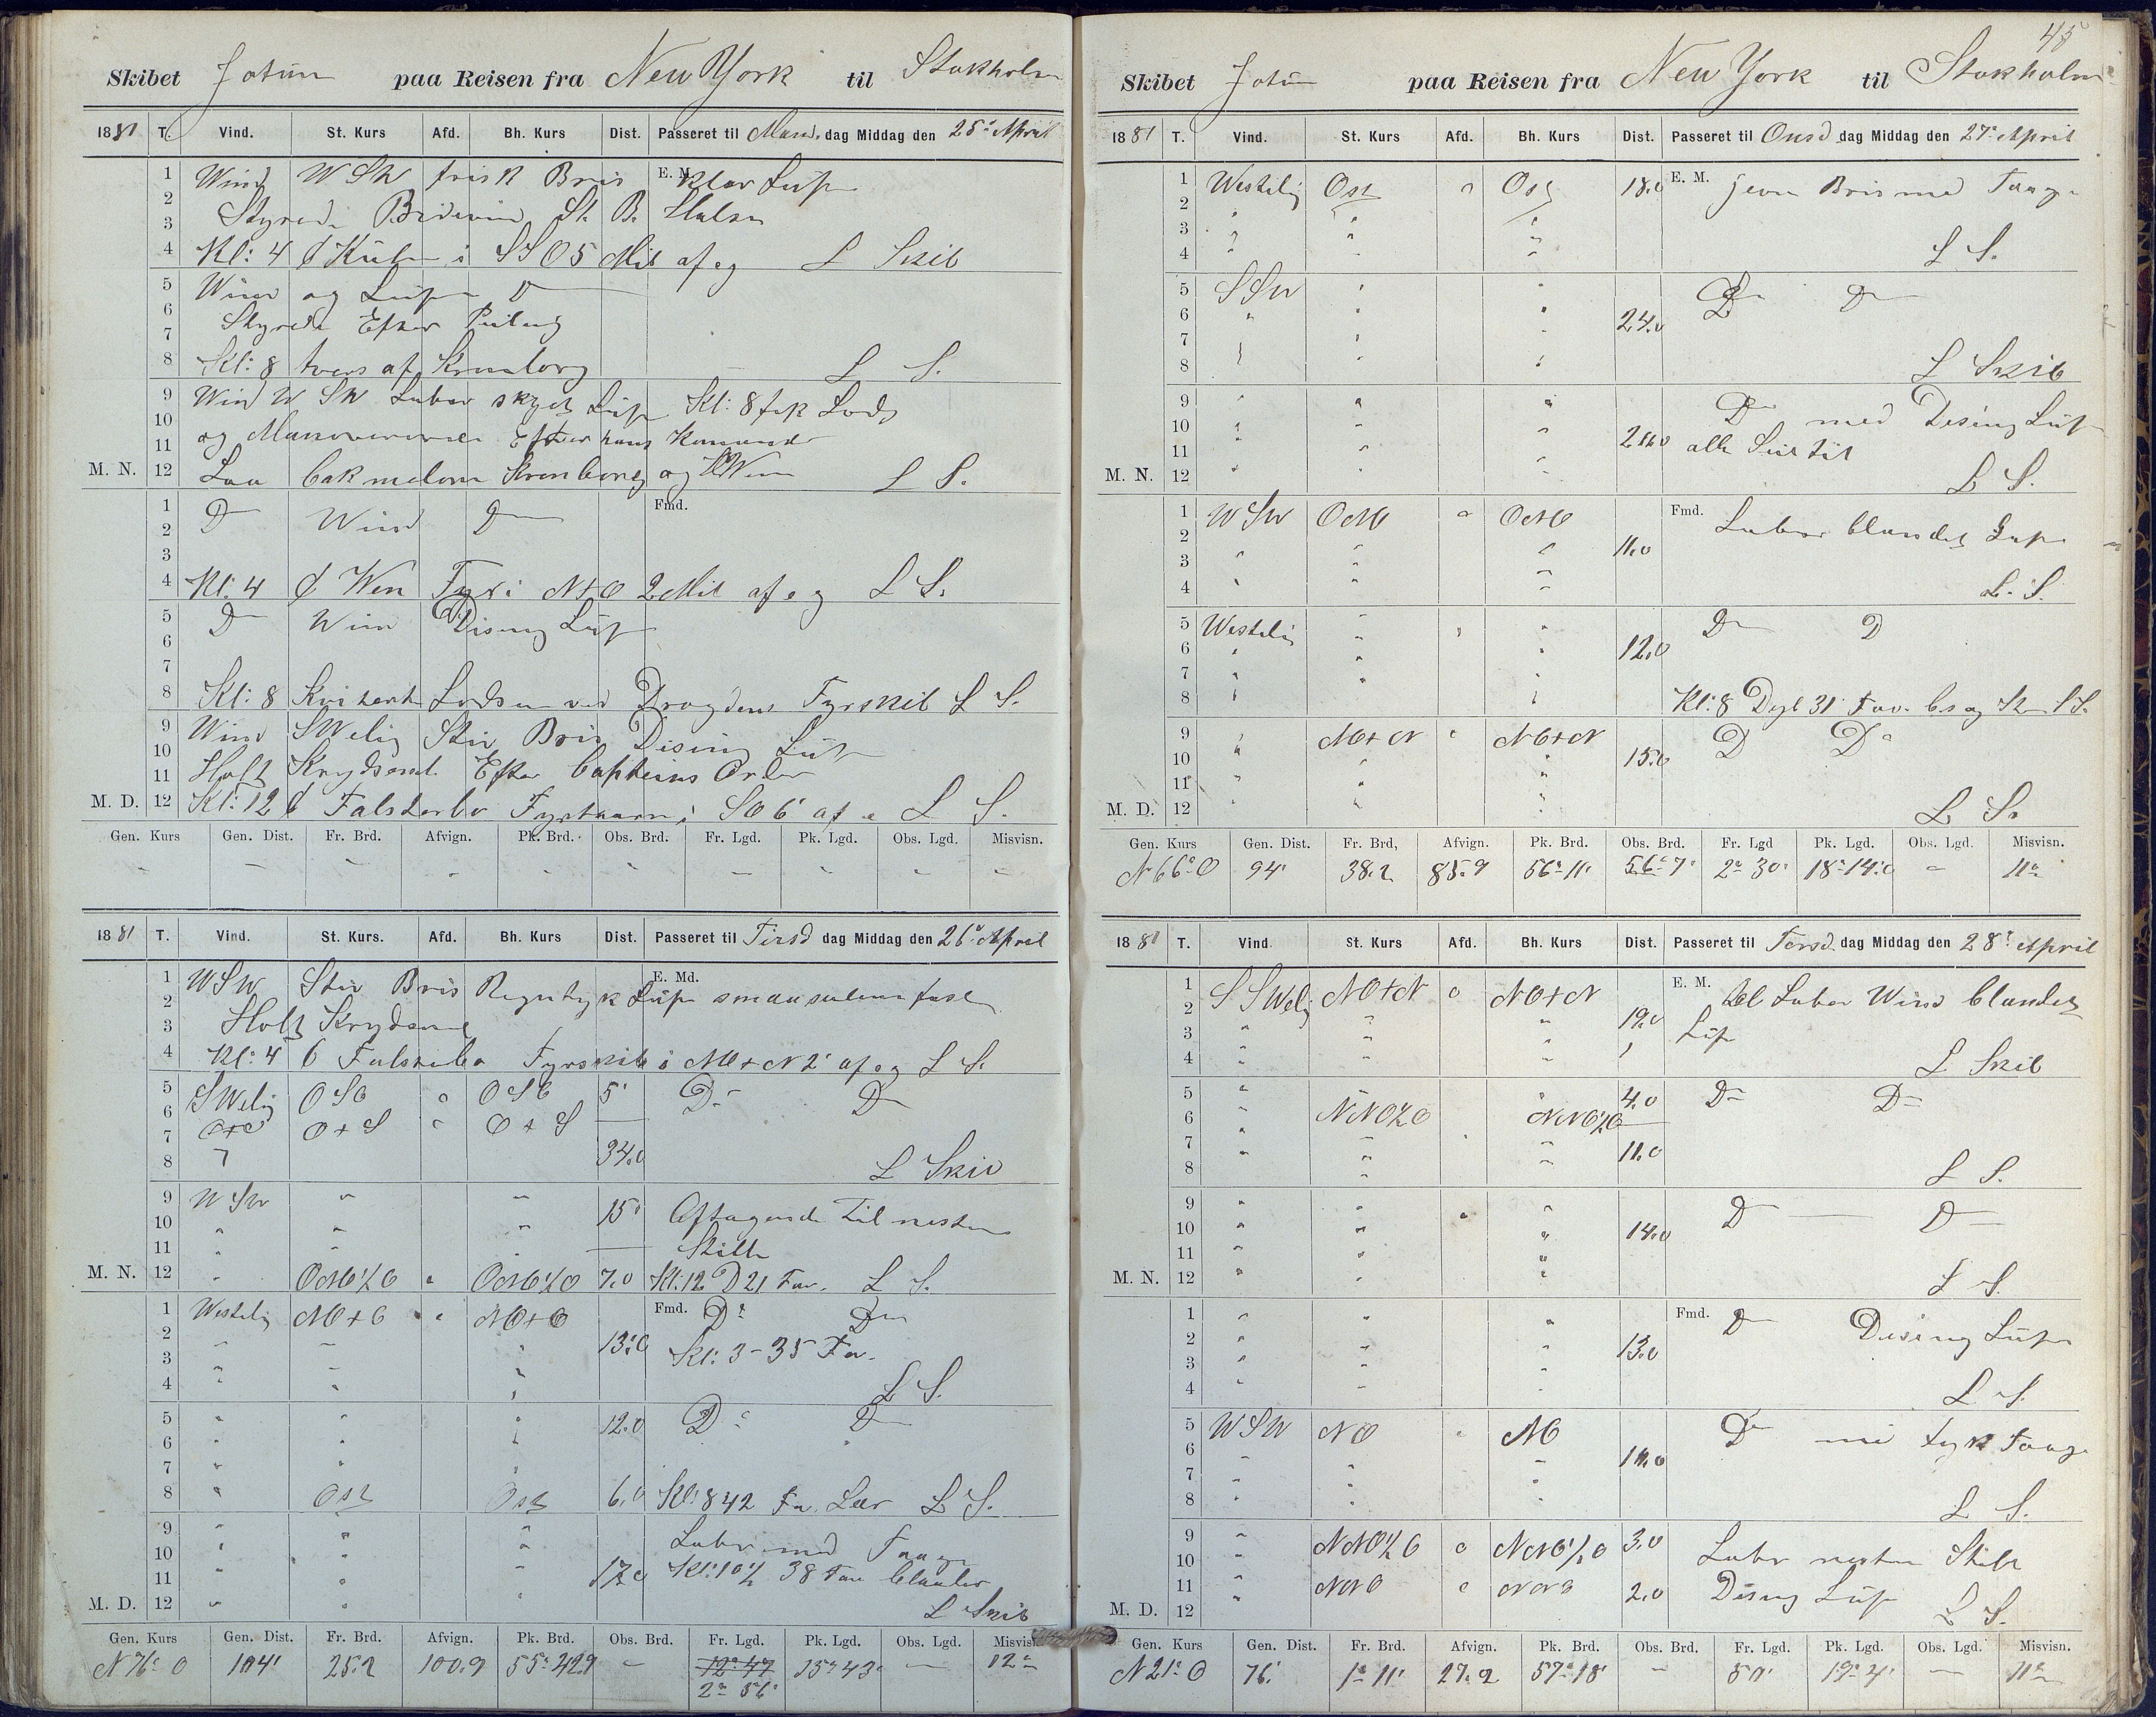 Skibet Jotun paa Reisen fra New York til Stokholm
1881 T. Vind. St. Kurs Afd. Bh. Kurs Dist. Passeret til Mand. dag Middag den 25' April
1 Wind WSW frisk Bris E. M. klar Luft
2 Styrede Bidevind St. B. Halse
3
4 Kl: 4 Kulen i SSO 5 Mil af og L Skib
5 Wind og Luft D
6 Styrede Efter Peiling
7
8 Kl: 8 tvers af Kronborg L S.
9 Wind W SW Laber skyet Luft Kl: 8 fik Lods
10 og Manovererede Efter hans Kommando
11
M. N. 12 Laa bak melom Kronborg og Wen L S.
1 D Wind D Fmd.
2
3
4 Kl: 4 Wen Fyr i N+O 2 Mil af og L S.
5 D Wind Dising Luft
6
7
8 Kl: 8 Kviterte Lodsen ved Drogdens Fyrskib L S.
9 Wind SWelig Stiv Bris Dising Luft
10 Holt Krydsende Efter Capteins Order
11
M. D. 12 Kl: 12 Falsterbo Fyrtaarn i SO 6' af L S.
Gen. Kurs Gen. Dist. Fr. Brd. Afvign. Pk. Brd. Obs. Brd. Fr. Lgd. Pk. Lgd. Obs. Lgd. Misvisn.
1881 T. Vind. St. Kurs. Afd. Bh. Kurs Dist. Passeret til Tirsd dag Middag den 26' April
1 WSW Stiv Bris Regntyk Luft E. Md.
2 Holt Krydsende
3
4 Kl: 4 Falsterbo Fyrskib i NO+N 2' af og L S.
5 SWelig OSO OSO 5' D D
6 O+S O+S
7 34.0
8 L Skib
9 WSW " " 15' Aftagende til nesten
10 " " "
11 " " " Stille
M. N. 12 " ONO½O ONO½O 7.0 Kl: 12 D 21 Fav. L S.
1 Westelig NO+O NO+O Fmd. D D
2 " " " 13.0 Kl: 3 - 35 Fa.
3 " " "
4 " " " L S.
5 " " " 12.0 D D
6 " " "
7 " " "
8 " Ost Ost 6.0 Kl: 8 42 Fa. Leer L S.
9 " " " Laber med Taage
10 " " " Kl: 10½ 38 Fav blauler
11 " " " 17.0
M. D. 12 " " " L Skib
Gen. Kurs Gen. Dist. Fr. Brd. Afvign. Pk. Brd. Obs. Brd. Fr. Lgd. Pk. Lgd. Obs. Lgd. Misvisn.
N 76° O 104' 25.2 100.9 55° 42.9 12° 47 15° 43' 12°
2° 56'
45
Skibet Jotun paa Reisen fra New York til Stokholm
1881 T. Vind. St. Kurs Afd. Bh. Kurs Dist. Passeret til Onsd dag Middag den 27' April
1 Westelig Ost Ost 18.0 E. M. jevn Bris med Taage
2 " " "
3 " " "
4 " " " L S.
5 SSW " " D D
6 " " " 24.0
7 " " "
8 " " " L Skib
9 " " " D med Dising Luft
10 " " "
11 " " " alle Seil til
M. N. 12 " " " L S.
1 WSW ONO ONO Fmd. Laber blandet Luft
2 " " " 11.0
3 " " "
4 " " " L. S.
5 Westelig " " D D
6 " " " 12.0
7 " " "
8 " " " Kl: 8 Dyb 31 Fav. L S.
9 " NO+N NO+N D D
10 " " " 15.0
11 " " "
M. D. 12 " " " L S.
Gen. Kurs Gen. Dist. Fr. Brd, Afvign. Pk. Brd. Obs. Brd. Fr. Lgd Pk. Lgd. Obs. Lgd. Misvisn.
N 66° O 94' 38.2 85.9 56° 11' 56° 7' 2° 30' 18° 14.0 11°
1881 T. Vind. St. Kurs. Afd. Bh. Kurs Dist. Passeret til Torsd. dag Middag den 28' April
1 SSWelig NO+N NO+N E. M. Laber Wind blandet
2 " " " 19.0 Luft
3 " " "
4 " " " L Skib
5 " " " 4.0 D D
6 " NNO½O NNO½O
7 " " " 11.0
8 " " " L S.
9 " " " D D
10 " " " 14.0
11 " " "
M. N. 12 " " " L S.
1 " " " Fmd. D Dising Luft
2 " " " 13.0
3 " " "
4 " " " L S.
5 WSW NO NO D tyk Taage
6 " " "
7 " " "
8 " " " L S.
9 " NNO½O NNO½O 3.0 Laber nesten Stille
10 "
11 " NNO NNO 2.0 Disig Luft
M. D. 12 L S.
Gen. Kurs Gen. Dist. Fr. Brd. Afvign. Pk. Brd. Obs. Brd. Fr. Lgd. Pk. Lgd. Obs. Lgd. Misvisn.
N 21° O 76' 1° 11' 27.2 57° 18' 50' 19° 4' 11°